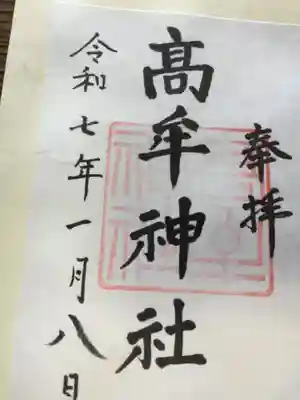 奉拝
高牟神社
令和七年一月八日